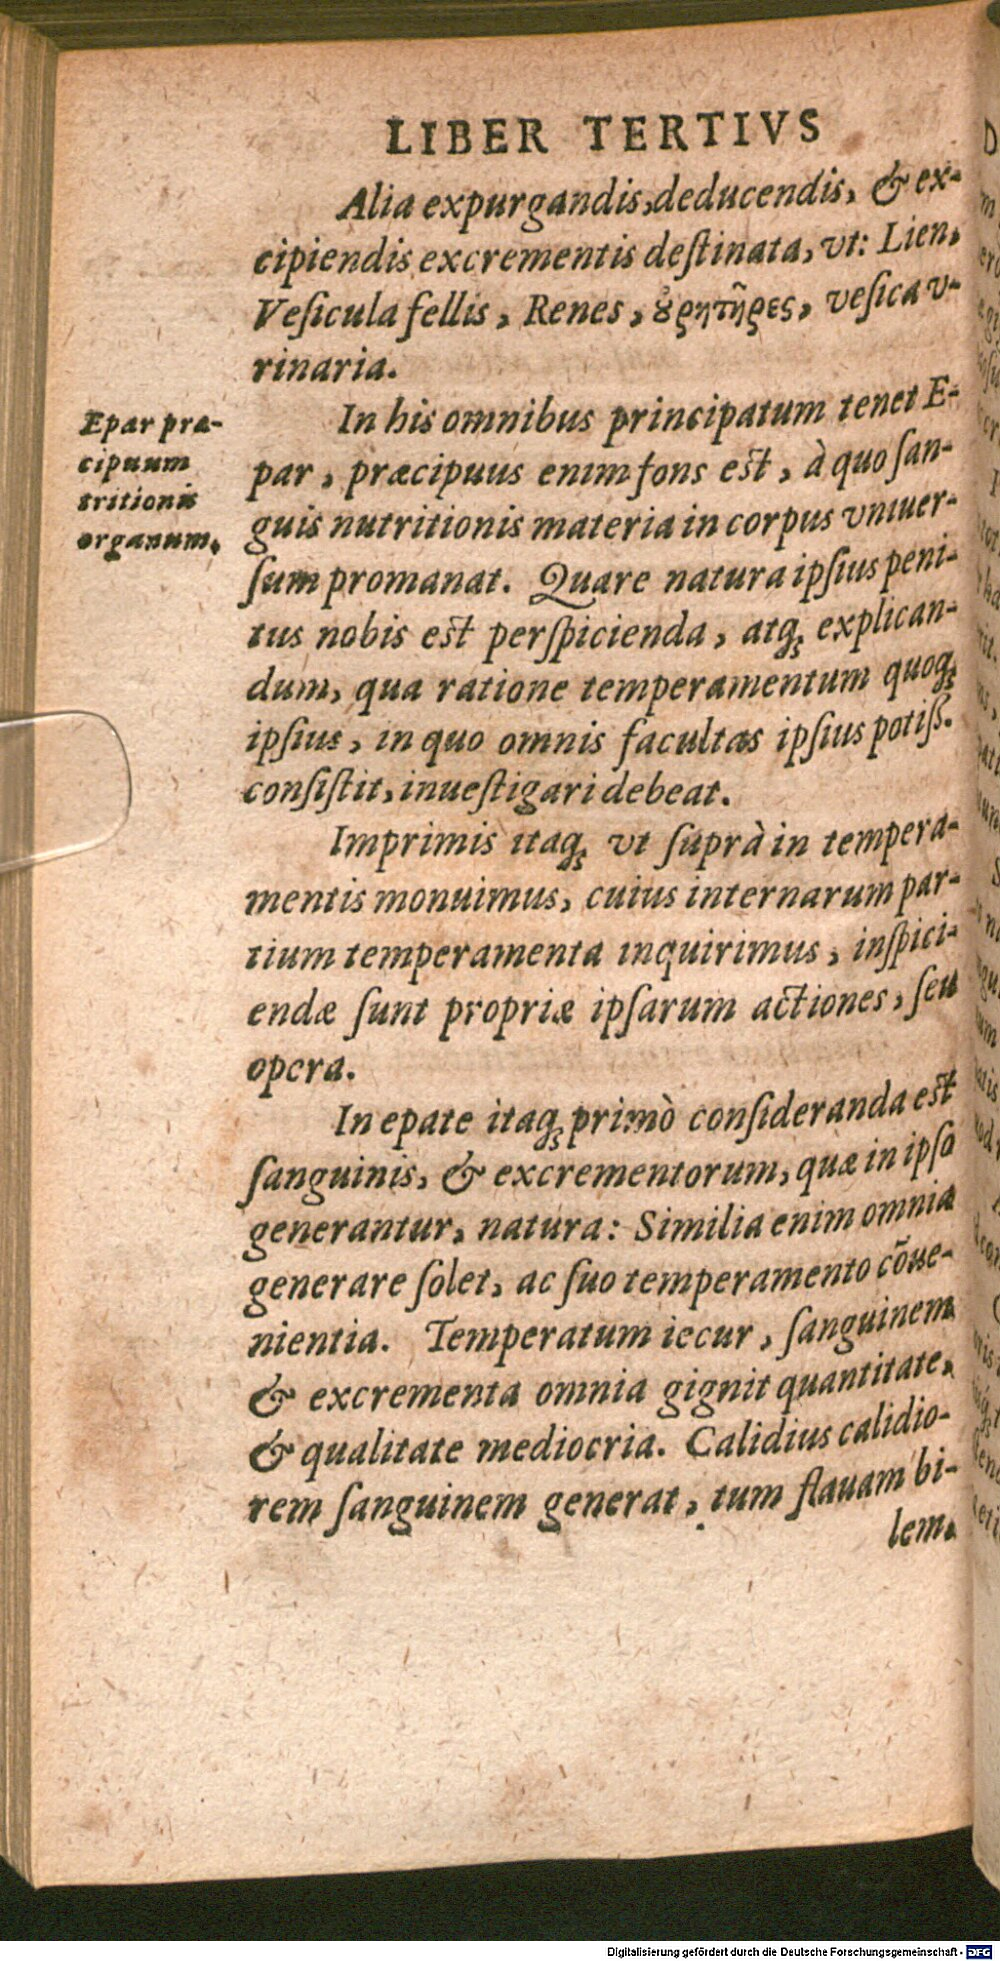 LIBER TERTIVS
Alia expurgandis, deducendis, & ex-
cipiendis excrementis deſtinata, vt: Lien,
Veſicula fellis, Renes, ȣ̓ρητῆρες, veſica v-
rinaria.
Epar præ-
cipuum
tritionis
organum.
In his omnibus principatum tenet E-
par, præcipuus enim fons est, à quo ſan-
guis nutritionis materia in corpus vniuer-
ſum promanat. Quare natura ipſius peni-
tus nobis est perſpicienda, atq; explican-
dum, qua ratione temperamentum quoq;
ipſius, in quo omnis facultas ipſius potiſſ.
conſiſtit, inueſtigari debeat.
Imprimis itaq; vt ſuprà in tempera-
mentis monuimus, cuius internarum par-
tium temperamenta inquirimus, inſpici-
endæ ſunt propriæ ipſarum actiones, ſeu
opera.
In epate itaq; primò conſideranda est
ſanguinis, & excrementorum, quæ in ipſo
generantur, natura: Similia enim omnia
generare ſolet, ac ſuo temperamento cõue-
nientia. Temperatum iecur, ſanguinem
& excrementa omnia gignit quantitate,
& qualitate mediocria. Calidius calidio-
rem ſanguinem generat, tum flauam bi-
lem,
Digitalisierung gefördert durch die Deutsche Forschungsgemeinschaft - DFG